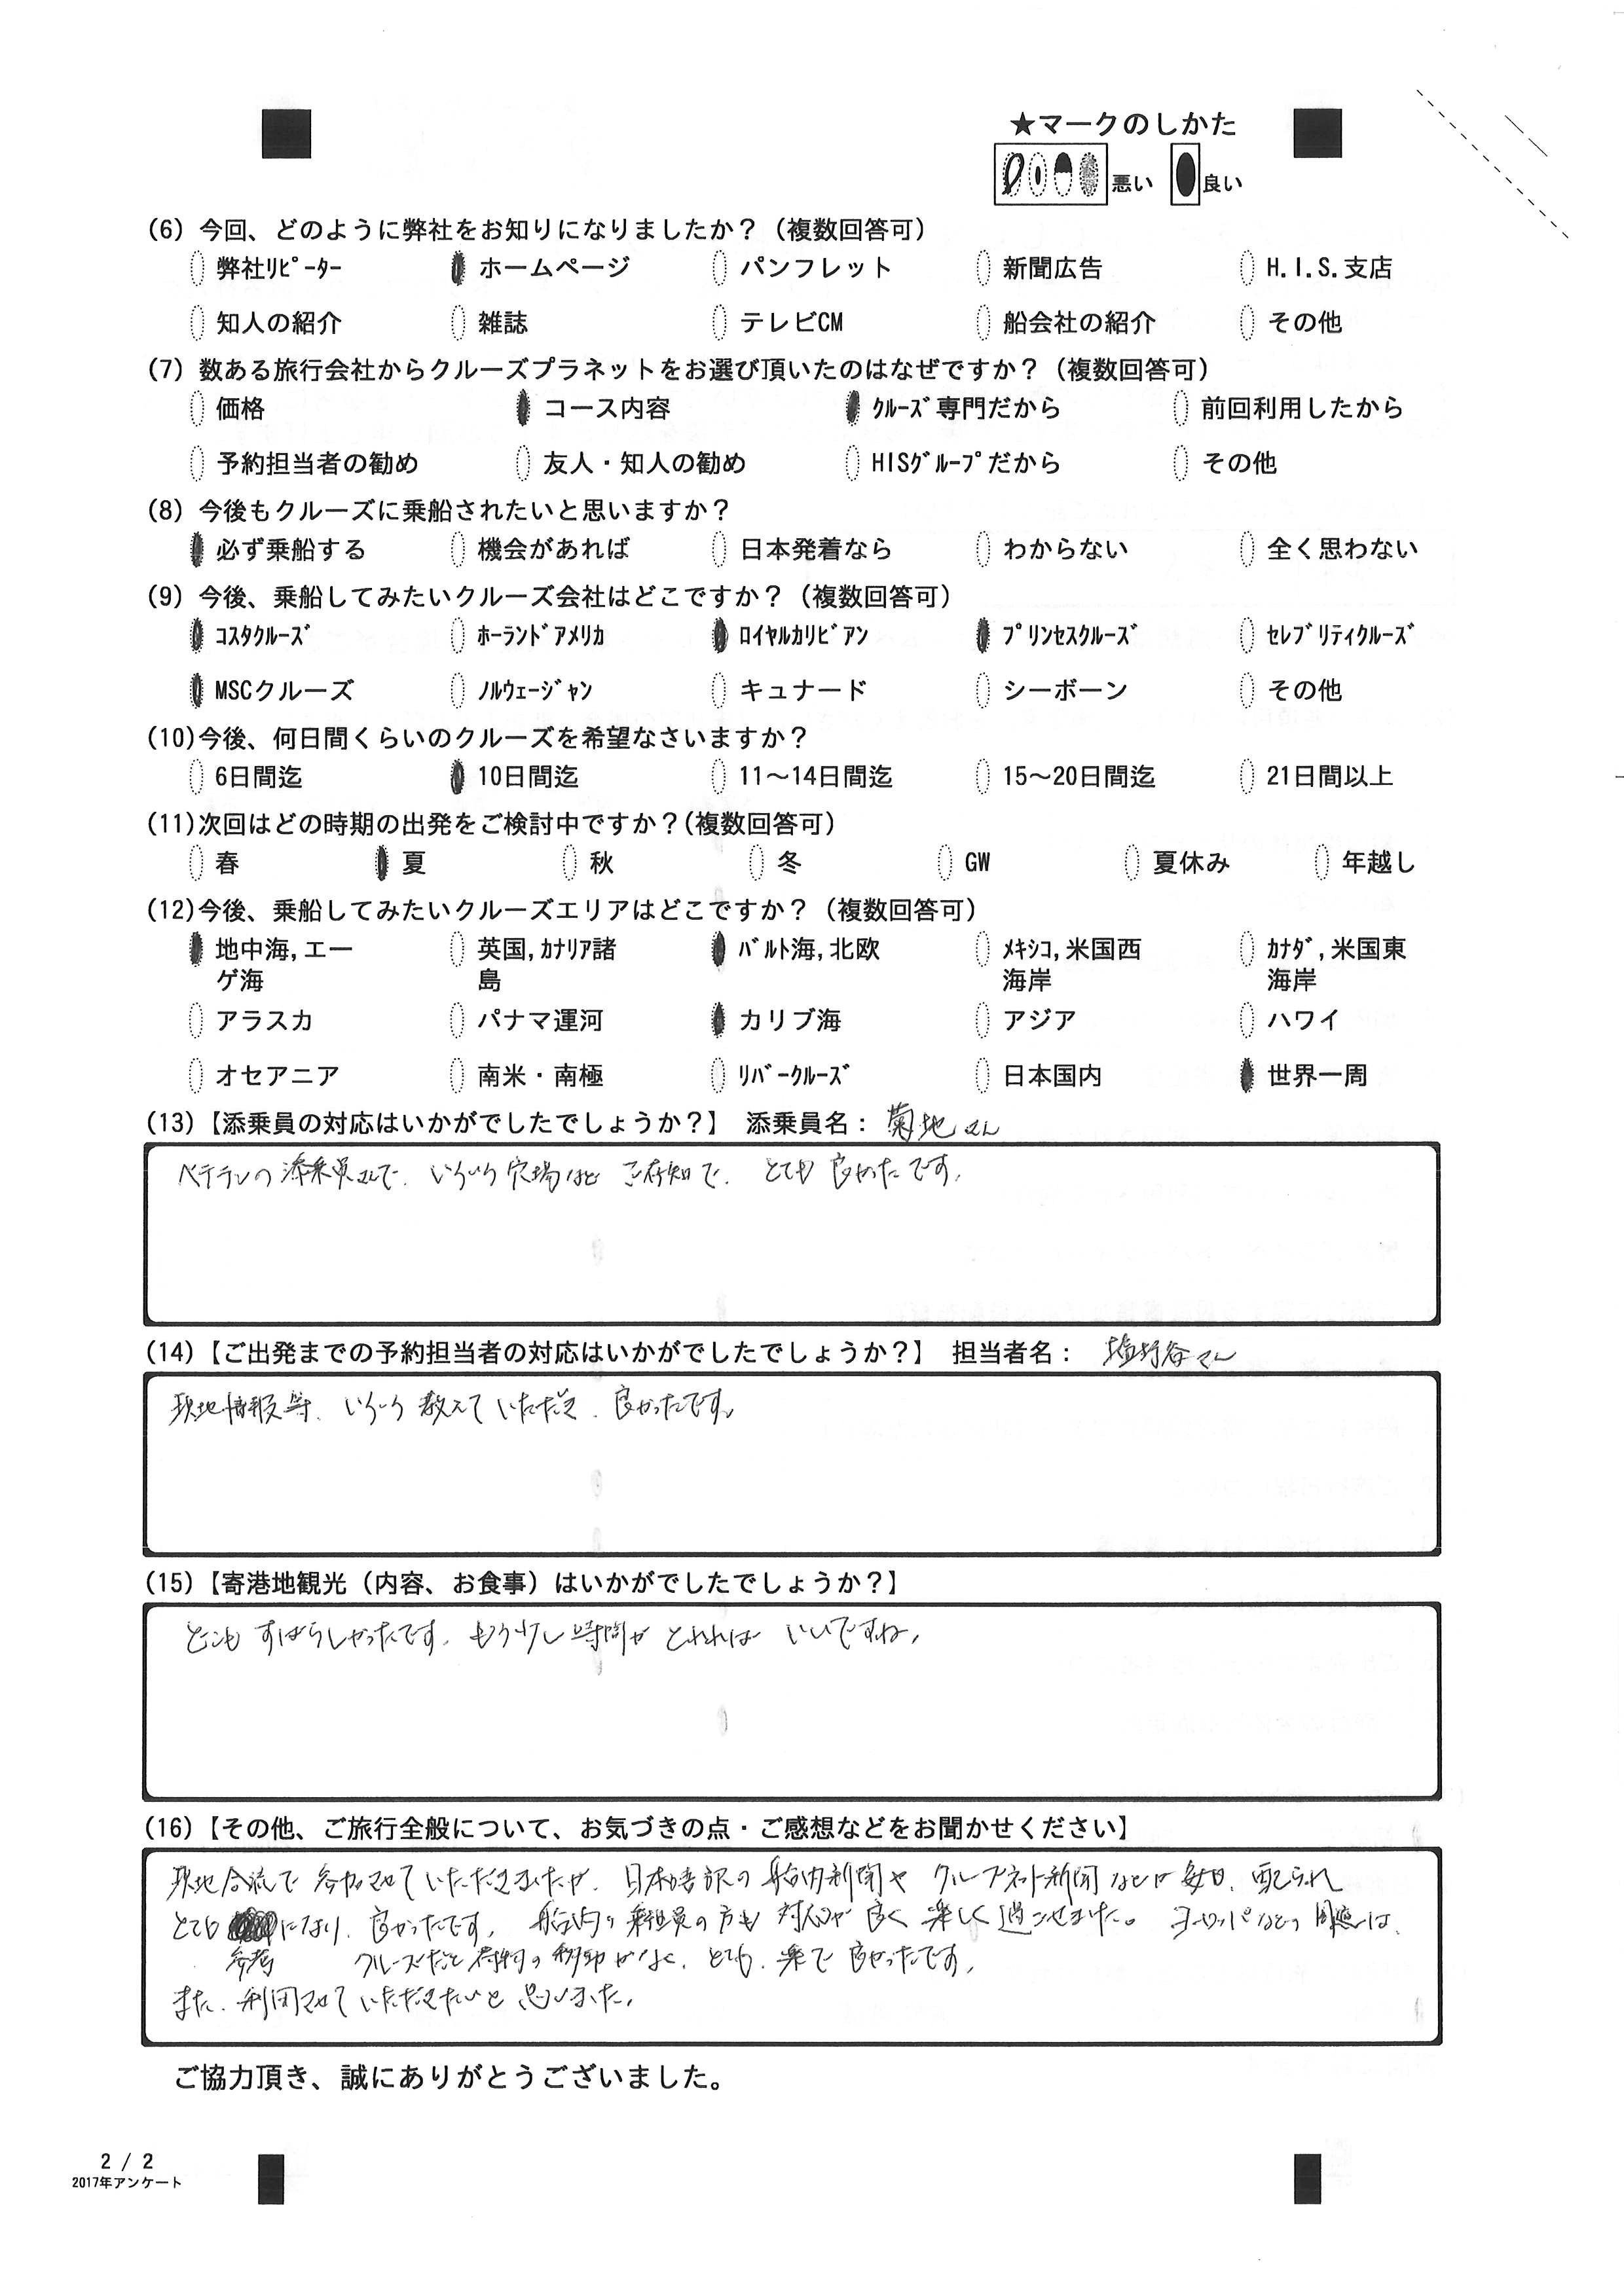 ★マークのしかた
悪い 良い
(6) 今回、どのように弊社をお知りになりましたか？（複数回答可）
弊社ﾘﾋﾟｰﾀｰ ホームページ パンフレット 新聞広告 H.I.S.支店
知人の紹介 雑誌 テレビCM 船会社の紹介 その他
(7) 数ある旅行会社からクルーズプラネットをお選び頂いたのはなぜですか？（複数回答可）
価格 コース内容 ｸﾙｰｽﾞ専門だから 前回利用したから
予約担当者の勧め 友人・知人の勧め HISｸﾞﾙｰﾌﾟだから その他
(8) 今後もクルーズに乗船されたいと思いますか？
必ず乗船する 機会があれば 日本発着なら わからない 全く思わない
(9) 今後、乗船してみたいクルーズ会社はどこですか？（複数回答可）
ｺｽﾀｸﾙｰｽﾞ ﾎｰﾗﾝﾄﾞｱﾒﾘｶ ﾛｲﾔﾙｶﾘﾋﾞｱﾝ ﾌﾟﾘﾝｾｽｸﾙｰｽﾞ ｾﾚﾌﾞﾘﾃｨｸﾙｰｽﾞ
MSCクルーズ ﾉﾙｳｪｰｼﾞｬﾝ キュナード シーボーン その他
(10)今後、何日間くらいのクルーズを希望なさいますか？
6日間迄 10日間迄 11～14日間迄 15～20日間迄 21日間以上
(11)次回はどの時期の出発をご検討中ですか？(複数回答可）
春 夏 秋 冬 GW 夏休み 年越し
(12)今後、乗船してみたいクルーズエリアはどこですか？（複数回答可）
地中海,エー 英国,ｶﾅﾘｱ諸 ﾊﾞﾙﾄ海,北欧 ﾒｷｼｺ,米国西 ｶﾅﾀﾞ,米国東
ゲ海 島 海岸 海岸
アラスカ パナマ運河 カリブ海 アジア ハワイ
オセアニア 南米・南極 ﾘﾊﾞｰｸﾙｰｽﾞ 日本国内 世界一周
(13)【添乗員の対応はいかがでしたでしょうか？】 添乗員名： 菊地さん
ベテランの添乗員さんで、いろいろ穴場などご存知で、とても良かったです。
(14)【ご出発までの予約担当者の対応はいかがでしたでしょうか？】 担当者名： 塩野谷さん
現地情報等、いろいろ教えていただき、良かったです。
(15)【寄港地観光（内容、お食事）はいかがでしたでしょうか？】
どこもすばらしかったです。もう少し時間がとれればいいですね。
(16)【その他、ご旅行全般について、お気づきの点・ご感想などをお聞かせください】
現地合流で参加させていただきましたが、日本語訳の船内新聞やクルーズネット新聞などが毎日、配られ
とても になり、良かったです。船内の乗組員の方も対応が良く楽しく過ごせました。ヨーロッパなどの周遊は、
参考 クルーズだと荷物の移動がなく、とても、楽で良かったです。
また、利用させていただきたいと思いました。
ご協力頂き、誠にありがとうございました。
2 / 2
2017年アンケート